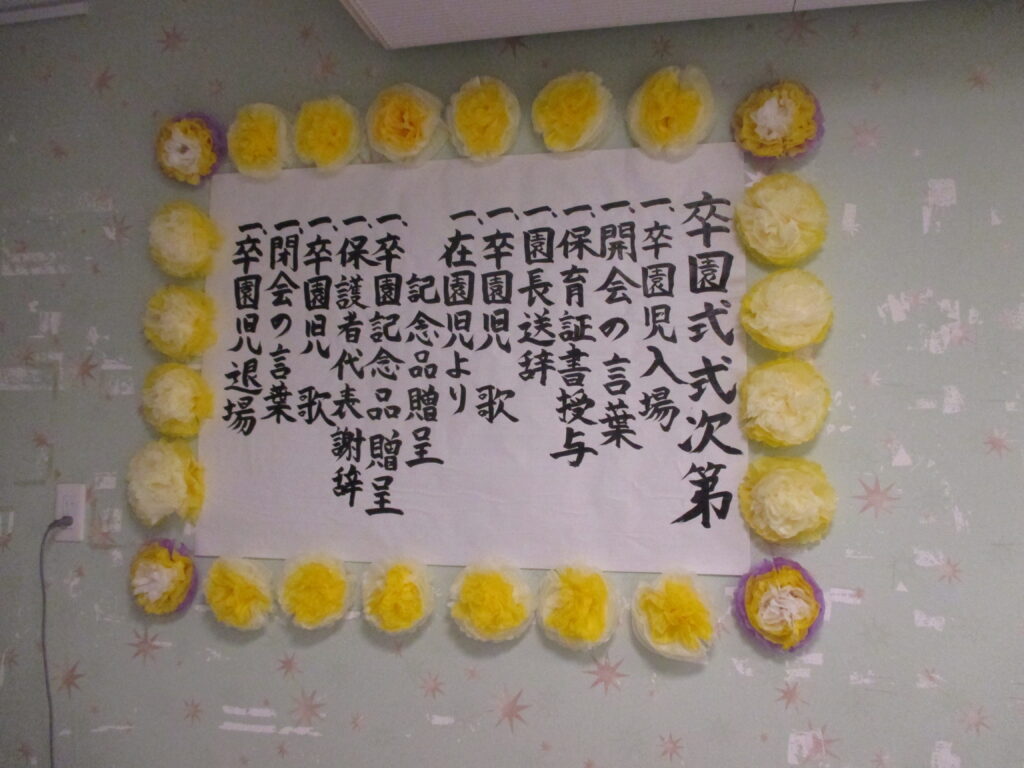 卒園式式次第
一、卒園児入場
一、開会の言葉
一、保育証書授与
一、園長送辞
一、卒園児 歌
一、在園児より
記念品贈呈
一、卒園記念品贈呈
一、保護者代表謝辞
一、卒園児 歌
一、閉会の言葉
一、卒園児退場